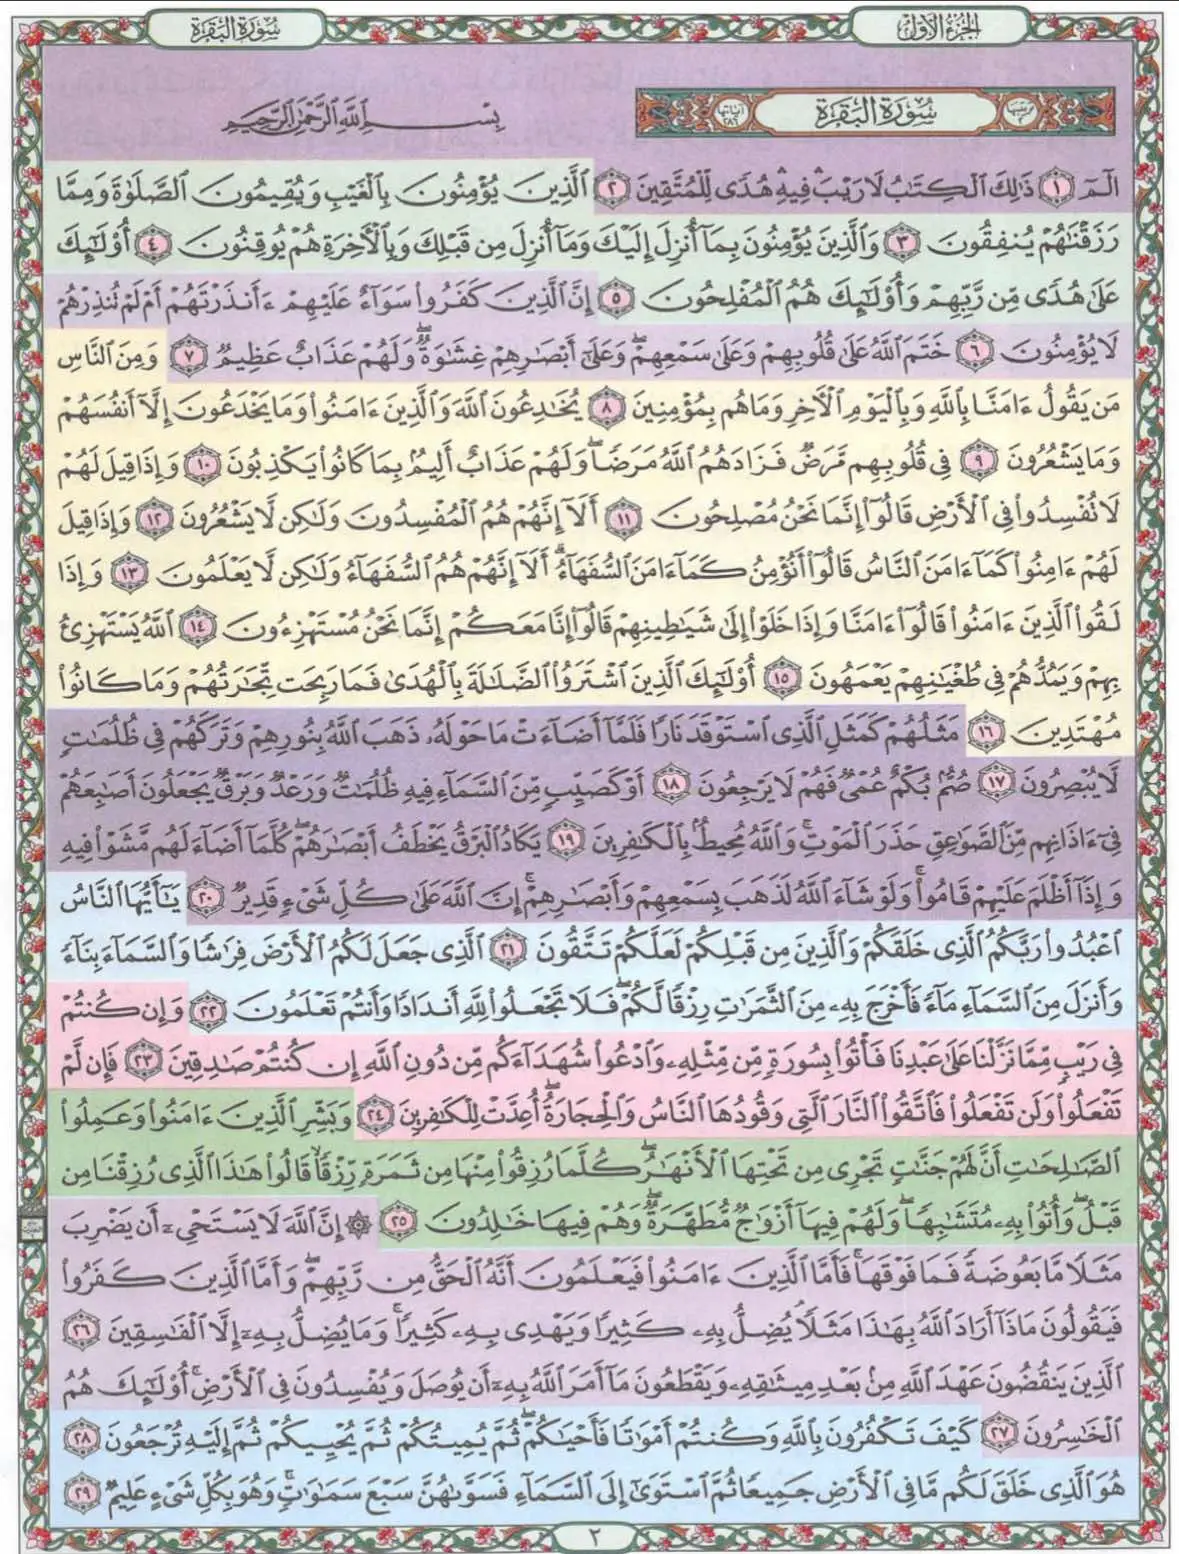 الجزء الأول
سورة البقرة
ترتيبها ٢
سورة البقرة
آياتها ٢٨٦
بِسْمِ ٱللَّهِ ٱلرَّحْمَٰنِ ٱلرَّحِيمِ
الٓمٓ ١ ذَٰلِكَ ٱلْكِتَٰبُ لَا رَيْبَ ۛ فِيهِ ۛ هُدًى لِّلْمُتَّقِينَ ٢ ٱلَّذِينَ يُؤْمِنُونَ بِٱلْغَيْبِ وَيُقِيمُونَ ٱلصَّلَوٰةَ وَمِمَّا
رَزَقْنَٰهُمْ يُنفِقُونَ ٣ وَٱلَّذِينَ يُؤْمِنُونَ بِمَآ أُنزِلَ إِلَيْكَ وَمَآ أُنزِلَ مِن قَبْلِكَ وَبِٱلْءَاخِرَةِ هُمْ يُوقِنُونَ ٤ أُو۟لَٰٓئِكَ
عَلَىٰ هُدًى مِّن رَّبِّهِمْ وَأُو۟لَٰٓئِكَ هُمُ ٱلْمُفْلِحُونَ ٥ إِنَّ ٱلَّذِينَ كَفَرُوا۟ سَوَآءٌ عَلَيْهِمْ ءَأَنذَرْتَهُمْ أَمْ لَمْ تُنذِرْهُمْ
لَا يُؤْمِنُونَ ٦ خَتَمَ ٱللَّهُ عَلَىٰ قُلُوبِهِمْ وَعَلَىٰ سَمْعِهِمْ ۖ وَعَلَىٰٓ أَبْصَٰرِهِمْ غِشَٰوَةٌ ۖ وَلَهُمْ عَذَابٌ عَظِيمٌ ٧ وَمِنَ ٱلنَّاسِ
مَن يَقُولُ ءَامَنَّا بِٱللَّهِ وَبِٱلْيَوْمِ ٱلْءَاخِرِ وَمَا هُم بِمُؤْمِنِينَ ٨ يُخَٰدِعُونَ ٱللَّهَ وَٱلَّذِينَ ءَامَنُوا۟ وَمَا يَخْدَعُونَ إِلَّآ أَنفُسَهُمْ
وَمَا يَشْعُرُونَ ٩ فِى قُلُوبِهِم مَّرَضٌ فَزَادَهُمُ ٱللَّهُ مَرَضًا ۖ وَلَهُمْ عَذَابٌ أَلِيمٌۢ بِمَا كَانُوا۟ يَكْذِبُونَ ١٠ وَإِذَا قِيلَ لَهُمْ
لَا تُفْسِدُوا۟ فِى ٱلْأَرْضِ قَالُوٓا۟ إِنَّمَا نَحْنُ مُصْلِحُونَ ١١ أَلَآ إِنَّهُمْ هُمُ ٱلْمُفْسِدُونَ وَلَٰكِن لَّا يَشْعُرُونَ ١٢ وَإِذَا قِيلَ
لَهُمْ ءَامِنُوا۟ كَمَآ ءَامَنَ ٱلنَّاسُ قَالُوٓا۟ أَنُؤْمِنُ كَمَآ ءَامَنَ ٱلسُّفَهَآءُ ۗ أَلَآ إِنَّهُمْ هُمُ ٱلسُّفَهَآءُ وَلَٰكِن لَّا يَعْلَمُونَ ١٣ وَإِذَا
لَقُوا۟ ٱلَّذِينَ ءَامَنُوا۟ قَالُوٓا۟ ءَامَنَّا وَإِذَا خَلَوْا۟ إِلَىٰ شَيَٰطِينِهِمْ قَالُوٓا۟ إِنَّا مَعَكُمْ إِنَّمَا نَحْنُ مُسْتَهْزِءُونَ ١٤ ٱللَّهُ يَسْتَهْزِئُ
بِهِمْ وَيَمُدُّهُمْ فِى طُغْيَٰنِهِمْ يَعْمَهُونَ ١٥ أُو۟لَٰٓئِكَ ٱلَّذِينَ ٱشْتَرَوُا۟ ٱلضَّلَٰلَةَ بِٱلْهُدَىٰ فَمَا رَبِحَت تِّجَٰرَتُهُمْ وَمَا كَانُوا۟
مُهْتَدِينَ ١٦ مَثَلُهُمْ كَمَثَلِ ٱلَّذِى ٱسْتَوْقَدَ نَارًا فَلَمَّآ أَضَآءَتْ مَا حَوْلَهُۥ ذَهَبَ ٱللَّهُ بِنُورِهِمْ وَتَرَكَهُمْ فِى ظُلُمَٰتٍ
لَّا يُبْصِرُونَ ١٧ صُمٌّۢ بُكْمٌ عُمْىٌ فَهُمْ لَا يَرْجِعُونَ ١٨ أَوْ كَصَيِّبٍ مِّنَ ٱلسَّمَآءِ فِيهِ ظُلُمَٰتٌ وَرَعْدٌ وَبَرْقٌ يَجْعَلُونَ أَصَٰبِعَهُمْ
فِىٓ ءَاذَانِهِم مِّنَ ٱلصَّوَٰعِقِ حَذَرَ ٱلْمَوْتِ ۚ وَٱللَّهُ مُحِيطٌۢ بِٱلْكَٰفِرِينَ ١٩ يَكَادُ ٱلْبَرْقُ يَخْطَفُ أَبْصَٰرَهُمْ ۖ كُلَّمَآ أَضَآءَ لَهُم مَّشَوْا۟ فِيهِ
وَإِذَآ أَظْلَمَ عَلَيْهِمْ قَامُوا۟ ۚ وَلَوْ شَآءَ ٱللَّهُ لَذَهَبَ بِسَمْعِهِمْ وَأَبْصَٰرِهِمْ ۚ إِنَّ ٱللَّهَ عَلَىٰ كُلِّ شَىْءٍ قَدِيرٌ ٢٠ يَٰٓأَيُّهَا ٱلنَّاسُ
ٱعْبُدُوا۟ رَبَّكُمُ ٱلَّذِى خَلَقَكُمْ وَٱلَّذِينَ مِن قَبْلِكُمْ لَعَلَّكُمْ تَتَّقُونَ ٢١ ٱلَّذِى جَعَلَ لَكُمُ ٱلْأَرْضَ فِرَٰشًا وَٱلسَّمَآءَ بِنَآءً
وَأَنزَلَ مِنَ ٱلسَّمَآءِ مَآءً فَأَخْرَجَ بِهِۦ مِنَ ٱلثَّمَرَٰتِ رِزْقًا لَّكُمْ ۖ فَلَا تَجْعَلُوا۟ لِلَّهِ أَندَادًا وَأَنتُمْ تَعْلَمُونَ ٢٢ وَإِن كُنتُمْ
فِى رَيْبٍ مِّمَّا نَزَّلْنَا عَلَىٰ عَبْدِنَا فَأْتُوا۟ بِسُورَةٍ مِّن مِّثْلِهِۦ وَٱدْعُوا۟ شُهَدَآءَكُم مِّن دُونِ ٱللَّهِ إِن كُنتُمْ صَٰدِقِينَ ٢٣ فَإِن لَّمْ
تَفْعَلُوا۟ وَلَن تَفْعَلُوا۟ فَٱتَّقُوا۟ ٱلنَّارَ ٱلَّتِى وَقُودُهَا ٱلنَّاسُ وَٱلْحِجَارَةُ ۖ أُعِدَّتْ لِلْكَٰفِرِينَ ٢٤ وَبَشِّرِ ٱلَّذِينَ ءَامَنُوا۟ وَعَمِلُوا۟
ٱلصَّٰلِحَٰتِ أَنَّ لَهُمْ جَنَّٰتٍ تَجْرِى مِن تَحْتِهَا ٱلْأَنْهَٰرُ ۖ كُلَّمَا رُزِقُوا۟ مِنْهَا مِن ثَمَرَةٍ رِّزْقًا ۙ قَالُوا۟ هَٰذَا ٱلَّذِى رُزِقْنَا مِن
قَبْلُ ۖ وَأُتُوا۟ بِهِۦ مُتَشَٰبِهًا ۖ وَلَهُمْ فِيهَآ أَزْوَٰجٌ مُّطَهَّرَةٌ ۖ وَهُمْ فِيهَا خَٰلِدُونَ ٢٥ ۞ إِنَّ ٱللَّهَ لَا يَسْتَحْىِۦٓ أَن يَضْرِبَ
مَثَلًا مَّا بَعُوضَةً فَمَا فَوْقَهَا ۚ فَأَمَّا ٱلَّذِينَ ءَامَنُوا۟ فَيَعْلَمُونَ أَنَّهُ ٱلْحَقُّ مِن رَّبِّهِمْ ۖ وَأَمَّا ٱلَّذِينَ كَفَرُوا۟
فَيَقُولُونَ مَاذَآ أَرَادَ ٱللَّهُ بِهَٰذَا مَثَلًا ۘ يُضِلُّ بِهِۦ كَثِيرًا وَيَهْدِى بِهِۦ كَثِيرًا ۚ وَمَا يُضِلُّ بِهِۦٓ إِلَّا ٱلْفَٰسِقِينَ ٢٦
ٱلَّذِينَ يَنقُضُونَ عَهْدَ ٱللَّهِ مِنۢ بَعْدِ مِيثَٰقِهِۦ وَيَقْطَعُونَ مَآ أَمَرَ ٱللَّهُ بِهِۦٓ أَن يُوصَلَ وَيُفْسِدُونَ فِى ٱلْأَرْضِ ۚ أُو۟لَٰٓئِكَ هُمُ
ٱلْخَٰسِرُونَ ٢٧ كَيْفَ تَكْفُرُونَ بِٱللَّهِ وَكُنتُمْ أَمْوَٰتًا فَأَحْيَٰكُمْ ۖ ثُمَّ يُمِيتُكُمْ ثُمَّ يُحْيِيكُمْ ثُمَّ إِلَيْهِ تُرْجَعُونَ ٢٨
هُوَ ٱلَّذِى خَلَقَ لَكُم مَّا فِى ٱلْأَرْضِ جَمِيعًا ثُمَّ ٱسْتَوَىٰٓ إِلَى ٱلسَّمَآءِ فَسَوَّىٰهُنَّ سَبْعَ سَمَٰوَٰتٍ ۚ وَهُوَ بِكُلِّ شَىْءٍ عَلِيمٌ ٢٩
٢